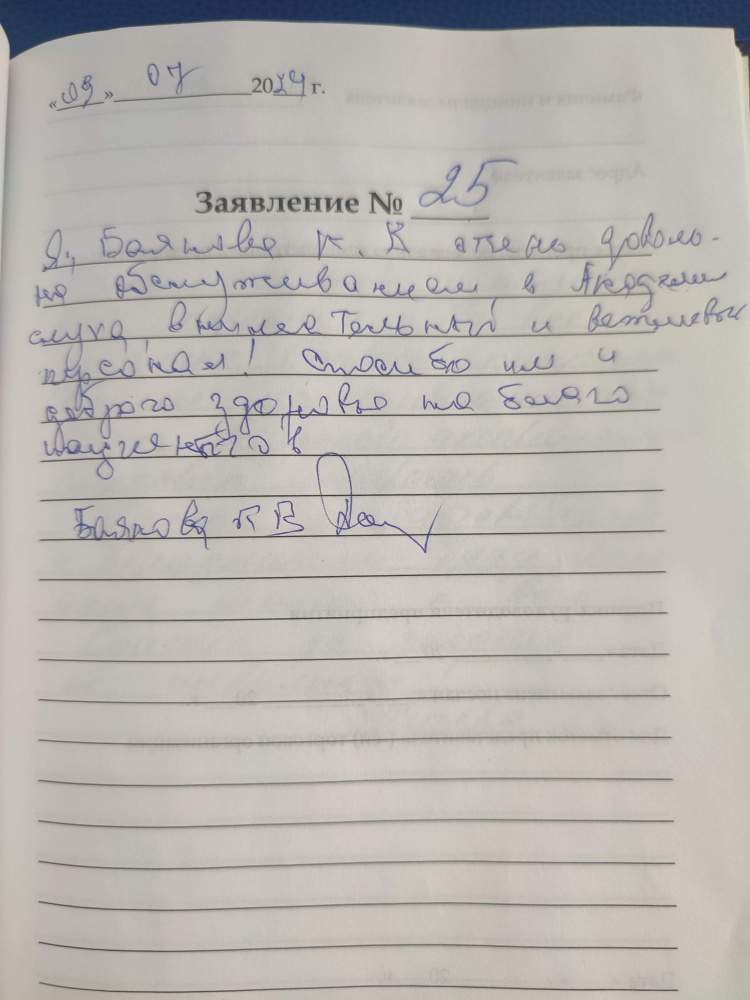 «09» 07 2024 г.
Заявление № 25
Я, Баянова К. В очень доволь-
на обслуживанием в Академии
слуха, внимательный и вежливый
персонал! Спасибо им и
доброго здоровья та благо
Баянова К В